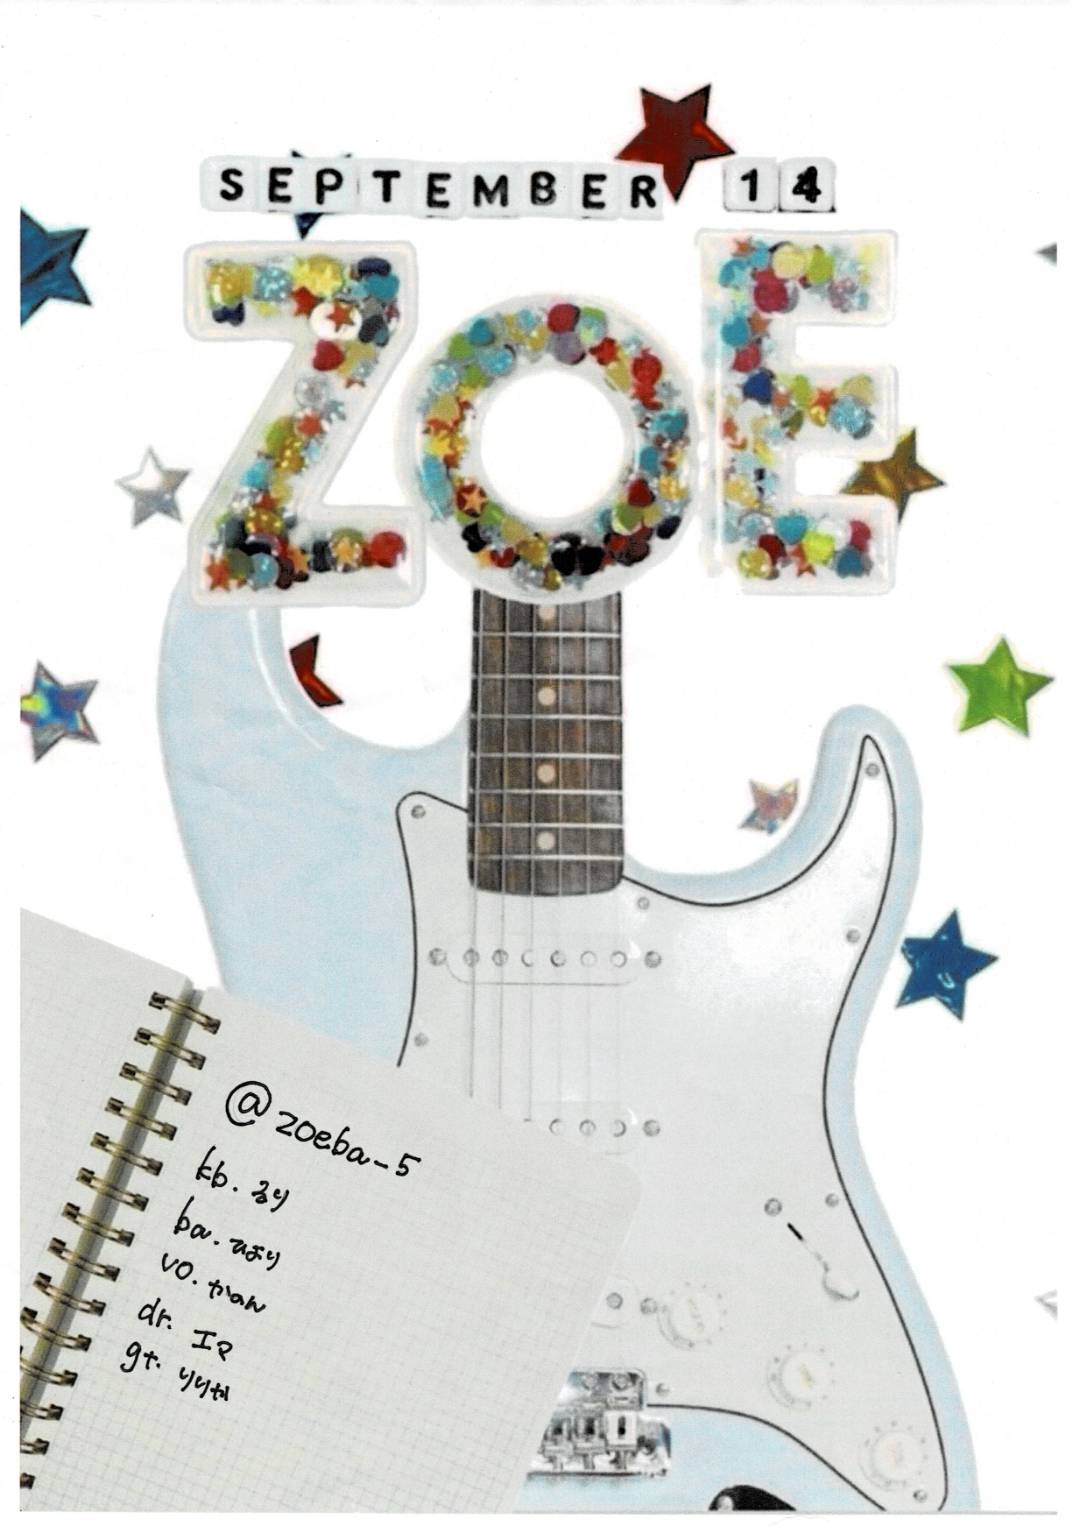 SEPTEMBER 14
ZOE
@zoeba_5
kb. るり
ba. ひまり
vo. かのん
dr. エマ
gt. りりか